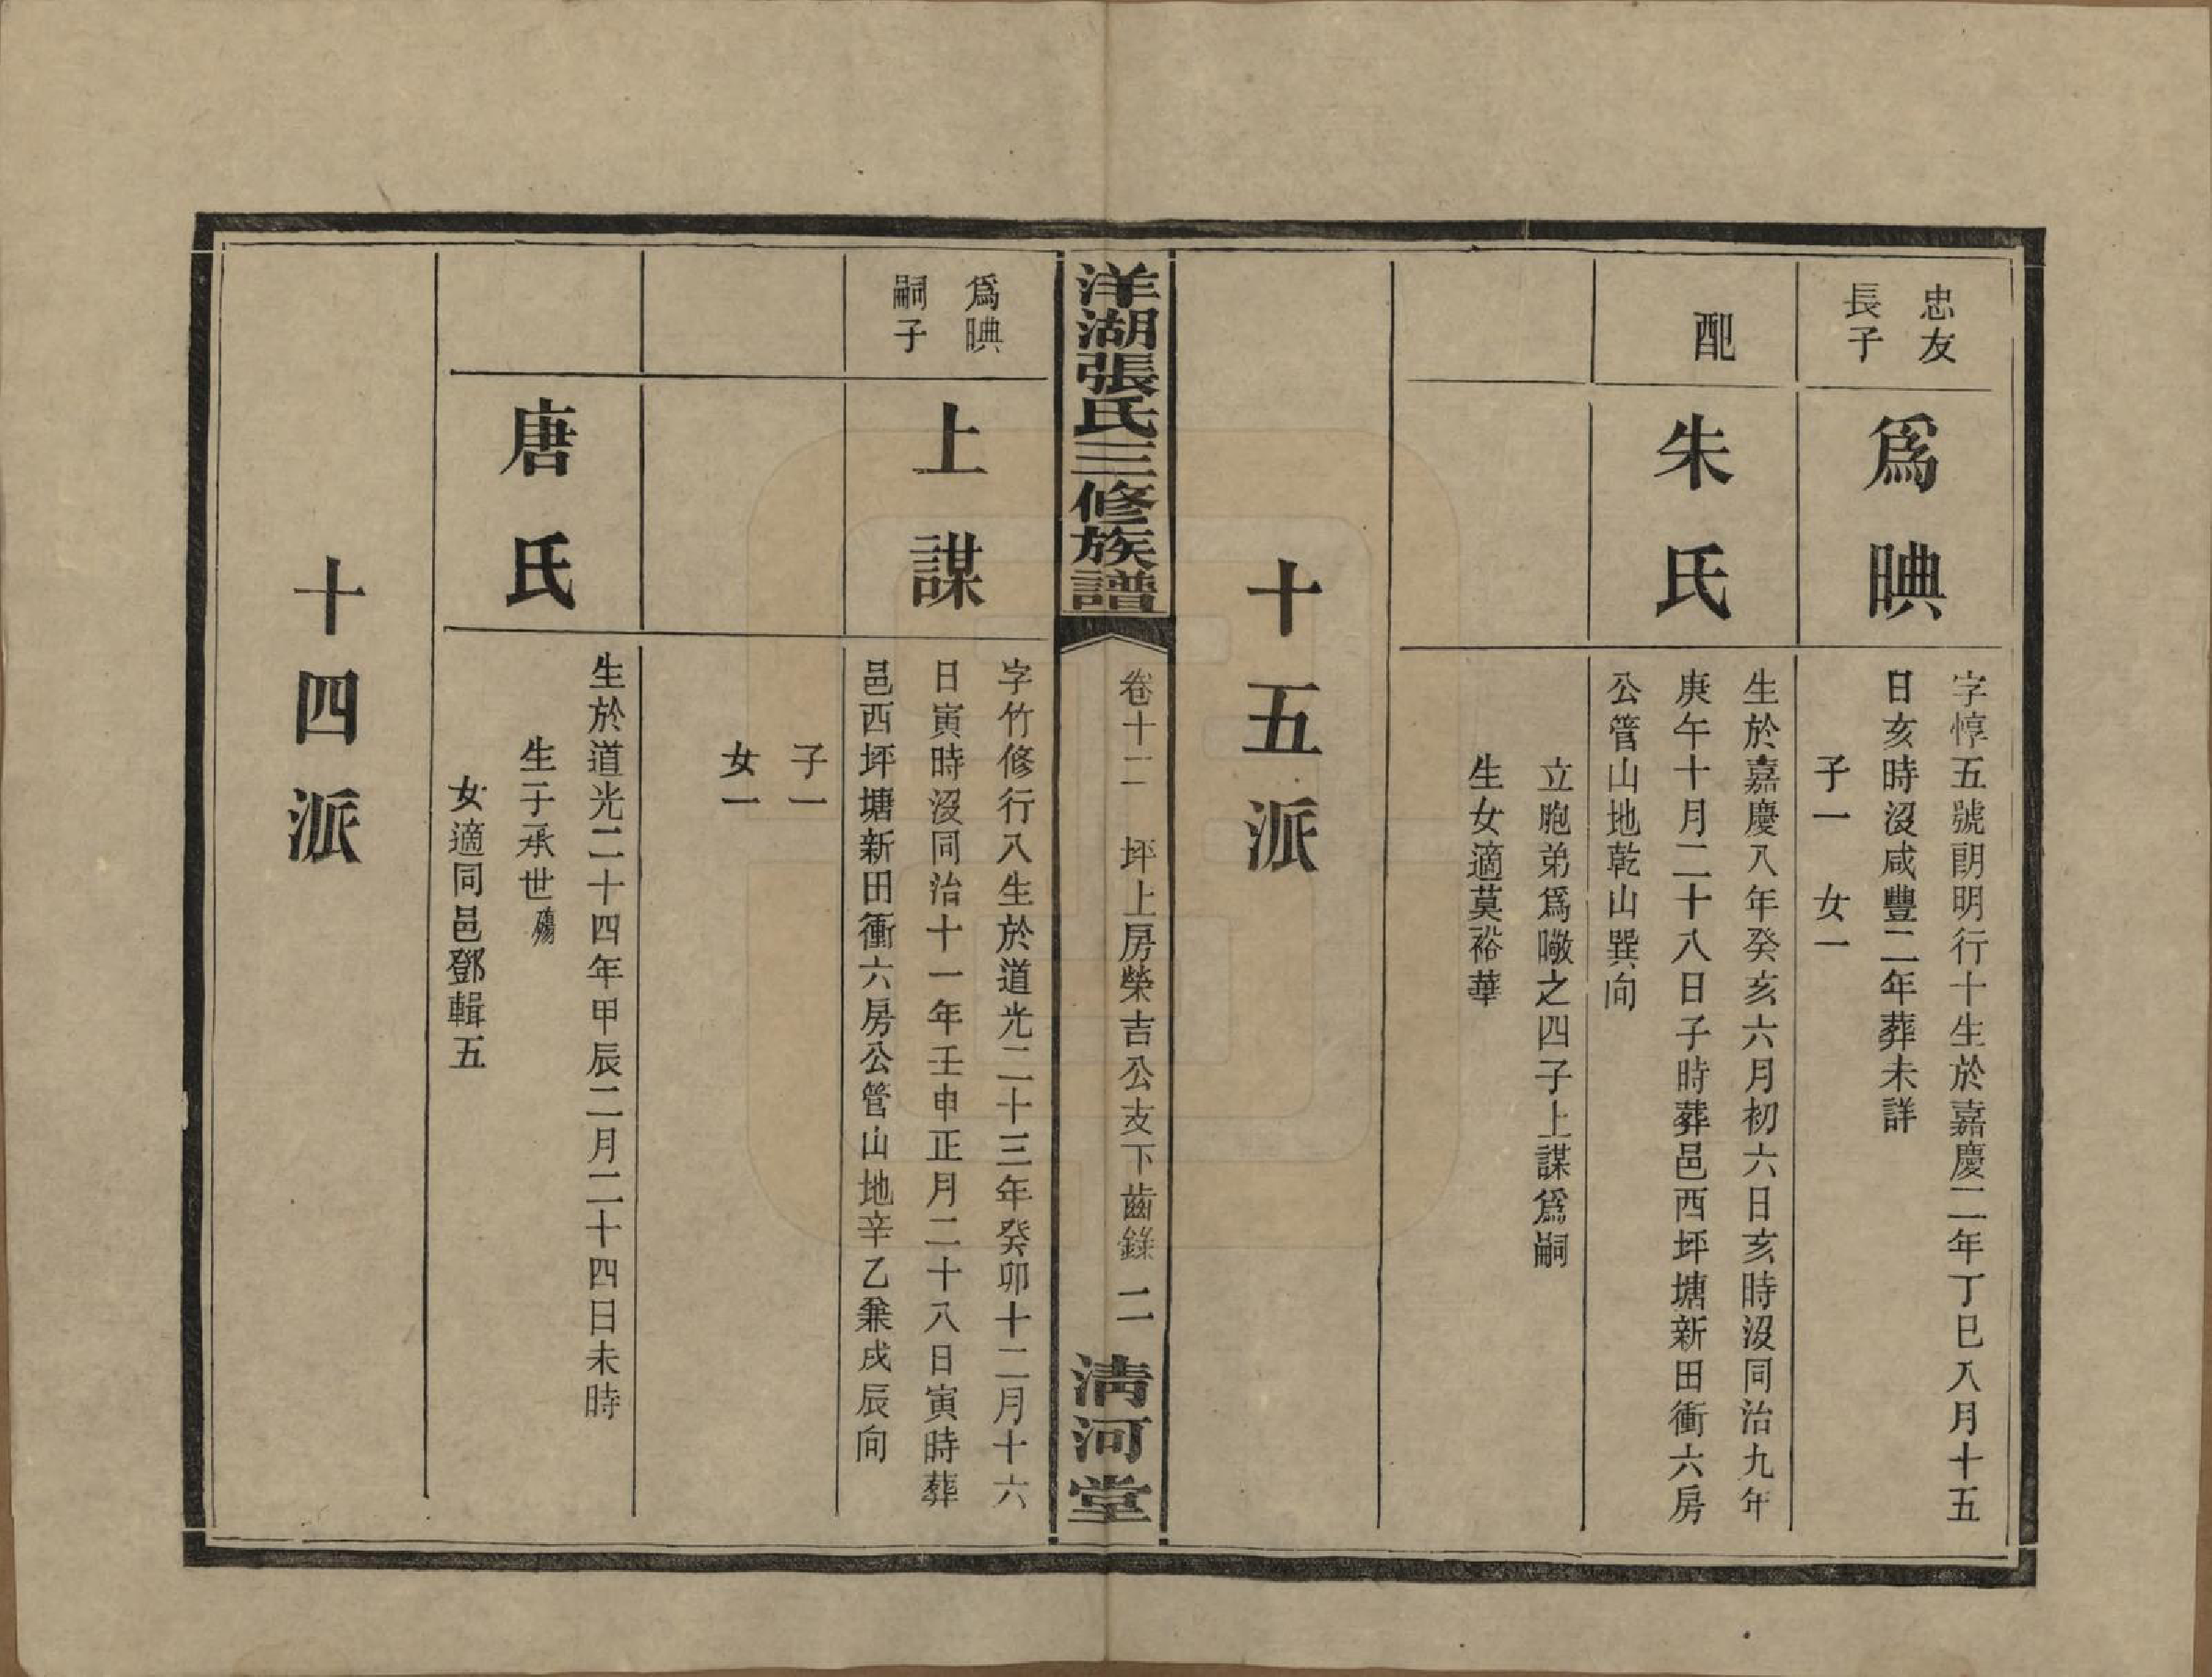 忠友
長子
爲晪
字惇五號朗明行十生於嘉慶二年丁巳八月十五
日亥時沒咸豐二年葬未詳
子一 女一
配
朱氏
生於嘉慶八年癸亥六月初六日亥時沒同治九年
庚午十月二十八日子時葬邑西坪塘新田衝六房
公管山地乾山巽向
立胞弟爲暾之四子上謀爲嗣
生女適莫裕華
十五派
洋湖張氏三修族譜
卷十二 坪上房榮吉公支下齒錄 二
清河堂
爲晪
嗣子
上謀
字竹修行八生於道光二十三年癸卯十二月十六
日寅時沒同治十一年壬申正月二十八日寅時葬
邑西坪塘新田衝六房公管山地辛乙兼戌辰向
子一
女一
唐氏
生於道光二十四年甲辰二月二十四日未時
生子承世殤
女適同邑鄧輯五
十四派